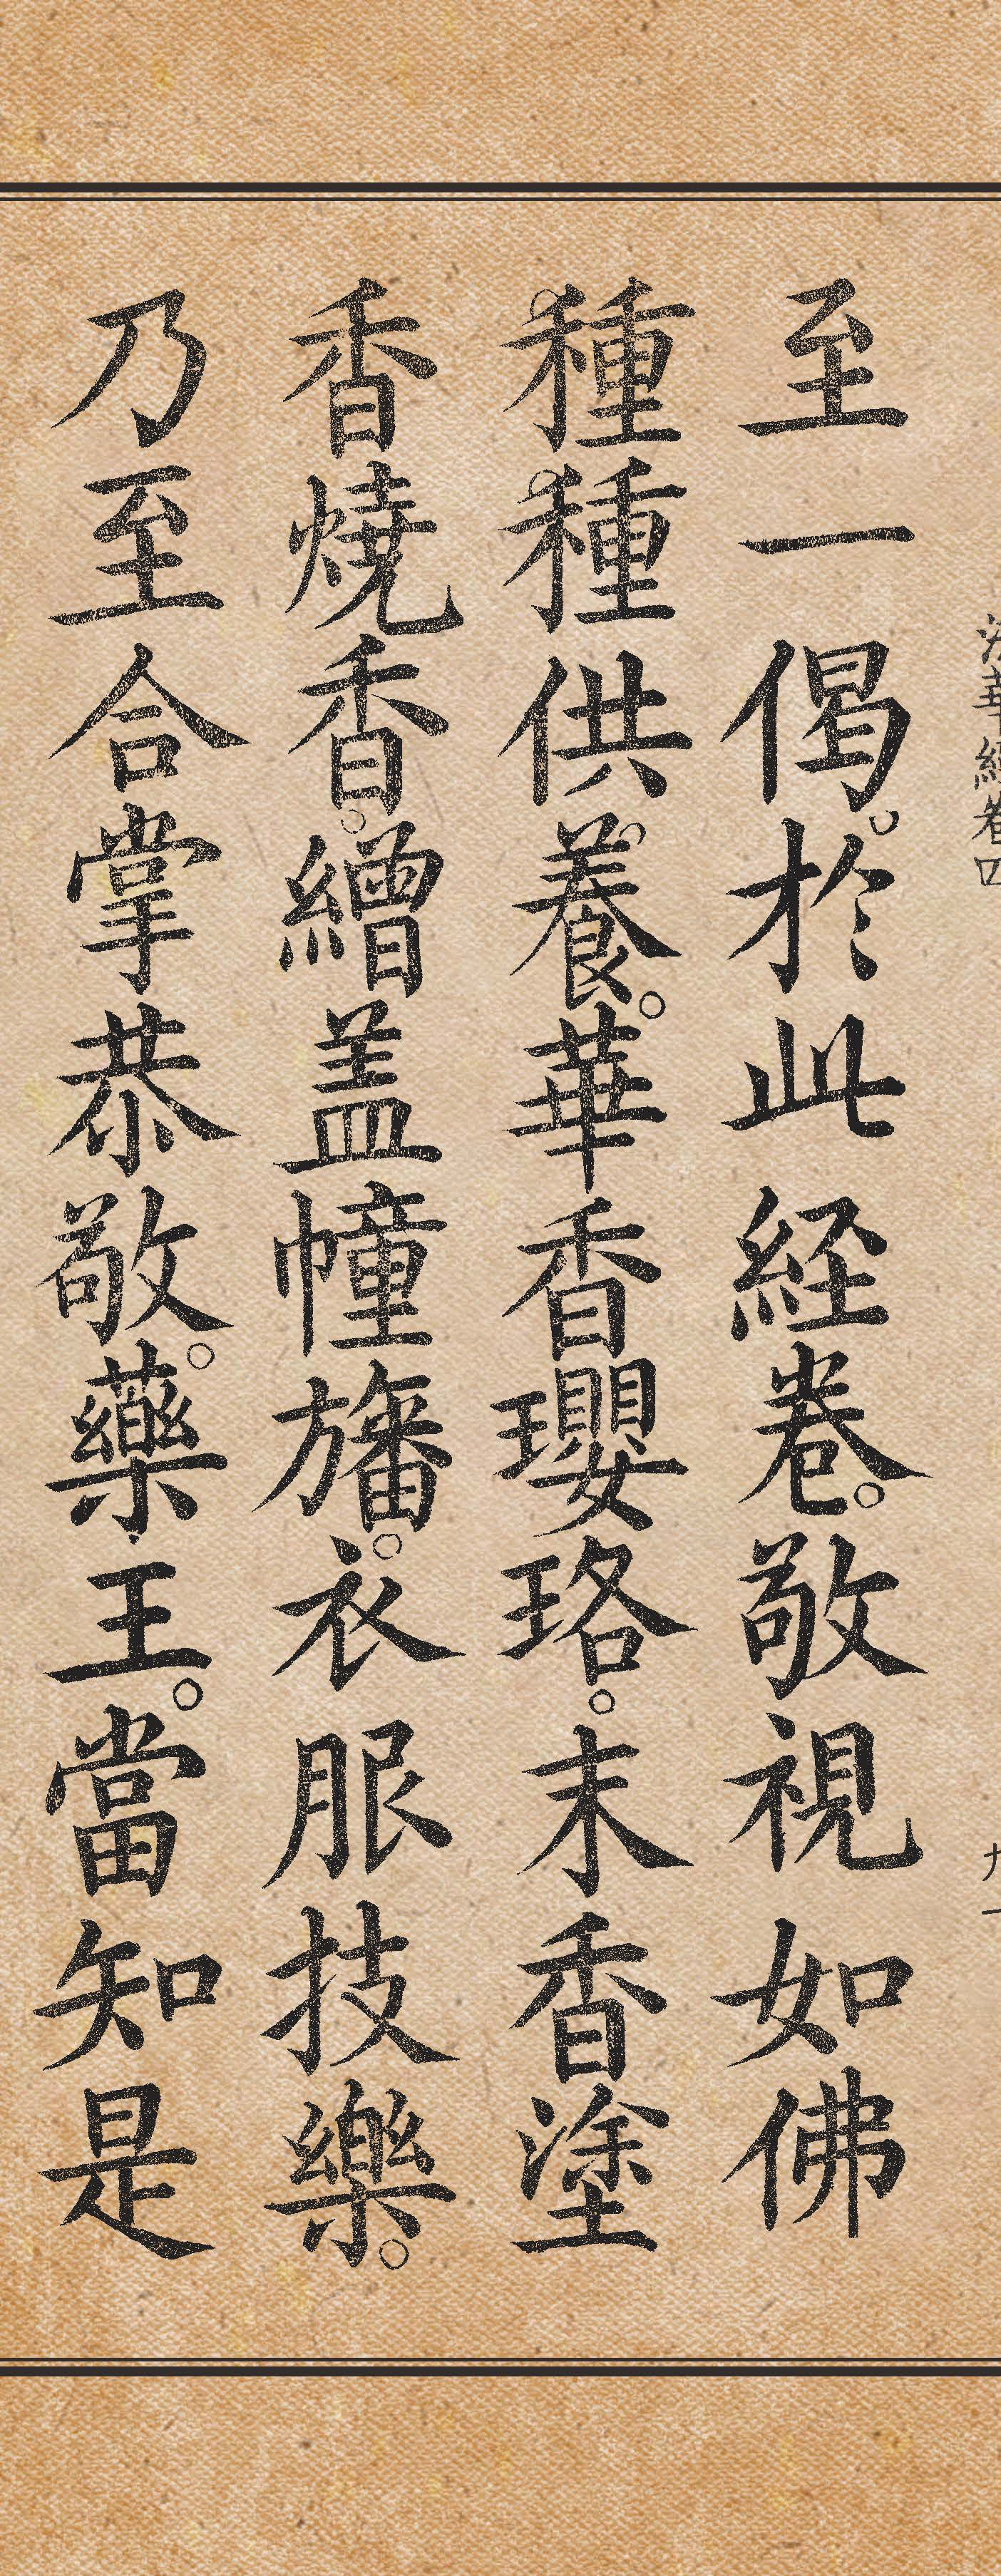 法華經卷四
九十
至一偈。於此経卷。敬視如佛
種種供養。華香瓔珞。末香塗
香燒香。繒盖幢旛。衣服技樂。
乃至合掌恭敬。藥王。當知是